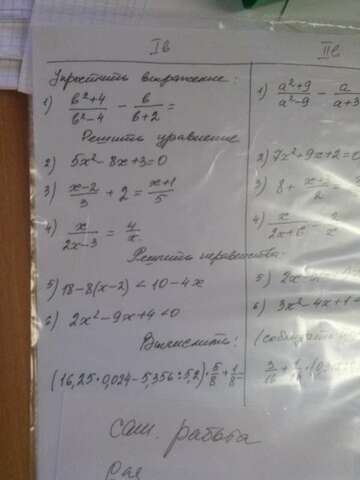 Iв
Упростить выражение:
1) (b²+4)/(b²-4) - b/(b+2) =
Решить уравнение
2) 5x² - 8x + 3 = 0
3) (x-2)/3 + 2 = (x+1)/5
4) x/(2x-3) = 4/x
Решить неравенства:
5) 18 - 8(x-2) < 10 - 4x
6) 2x² - 9x + 4 < 0
Вычислить:
(16,25 · 0,024 - 5,356 : 5,2) · 5/8 + 1/8 =
сам. работа
IIв
1) (a²+9)/(a²-9) - a/(a+3
2) 7x² + 9x + 2 = 0
3) 8 +
4) x/(2x+6)
5)
6) 3x² - 4x + 1
3/16 + 1/